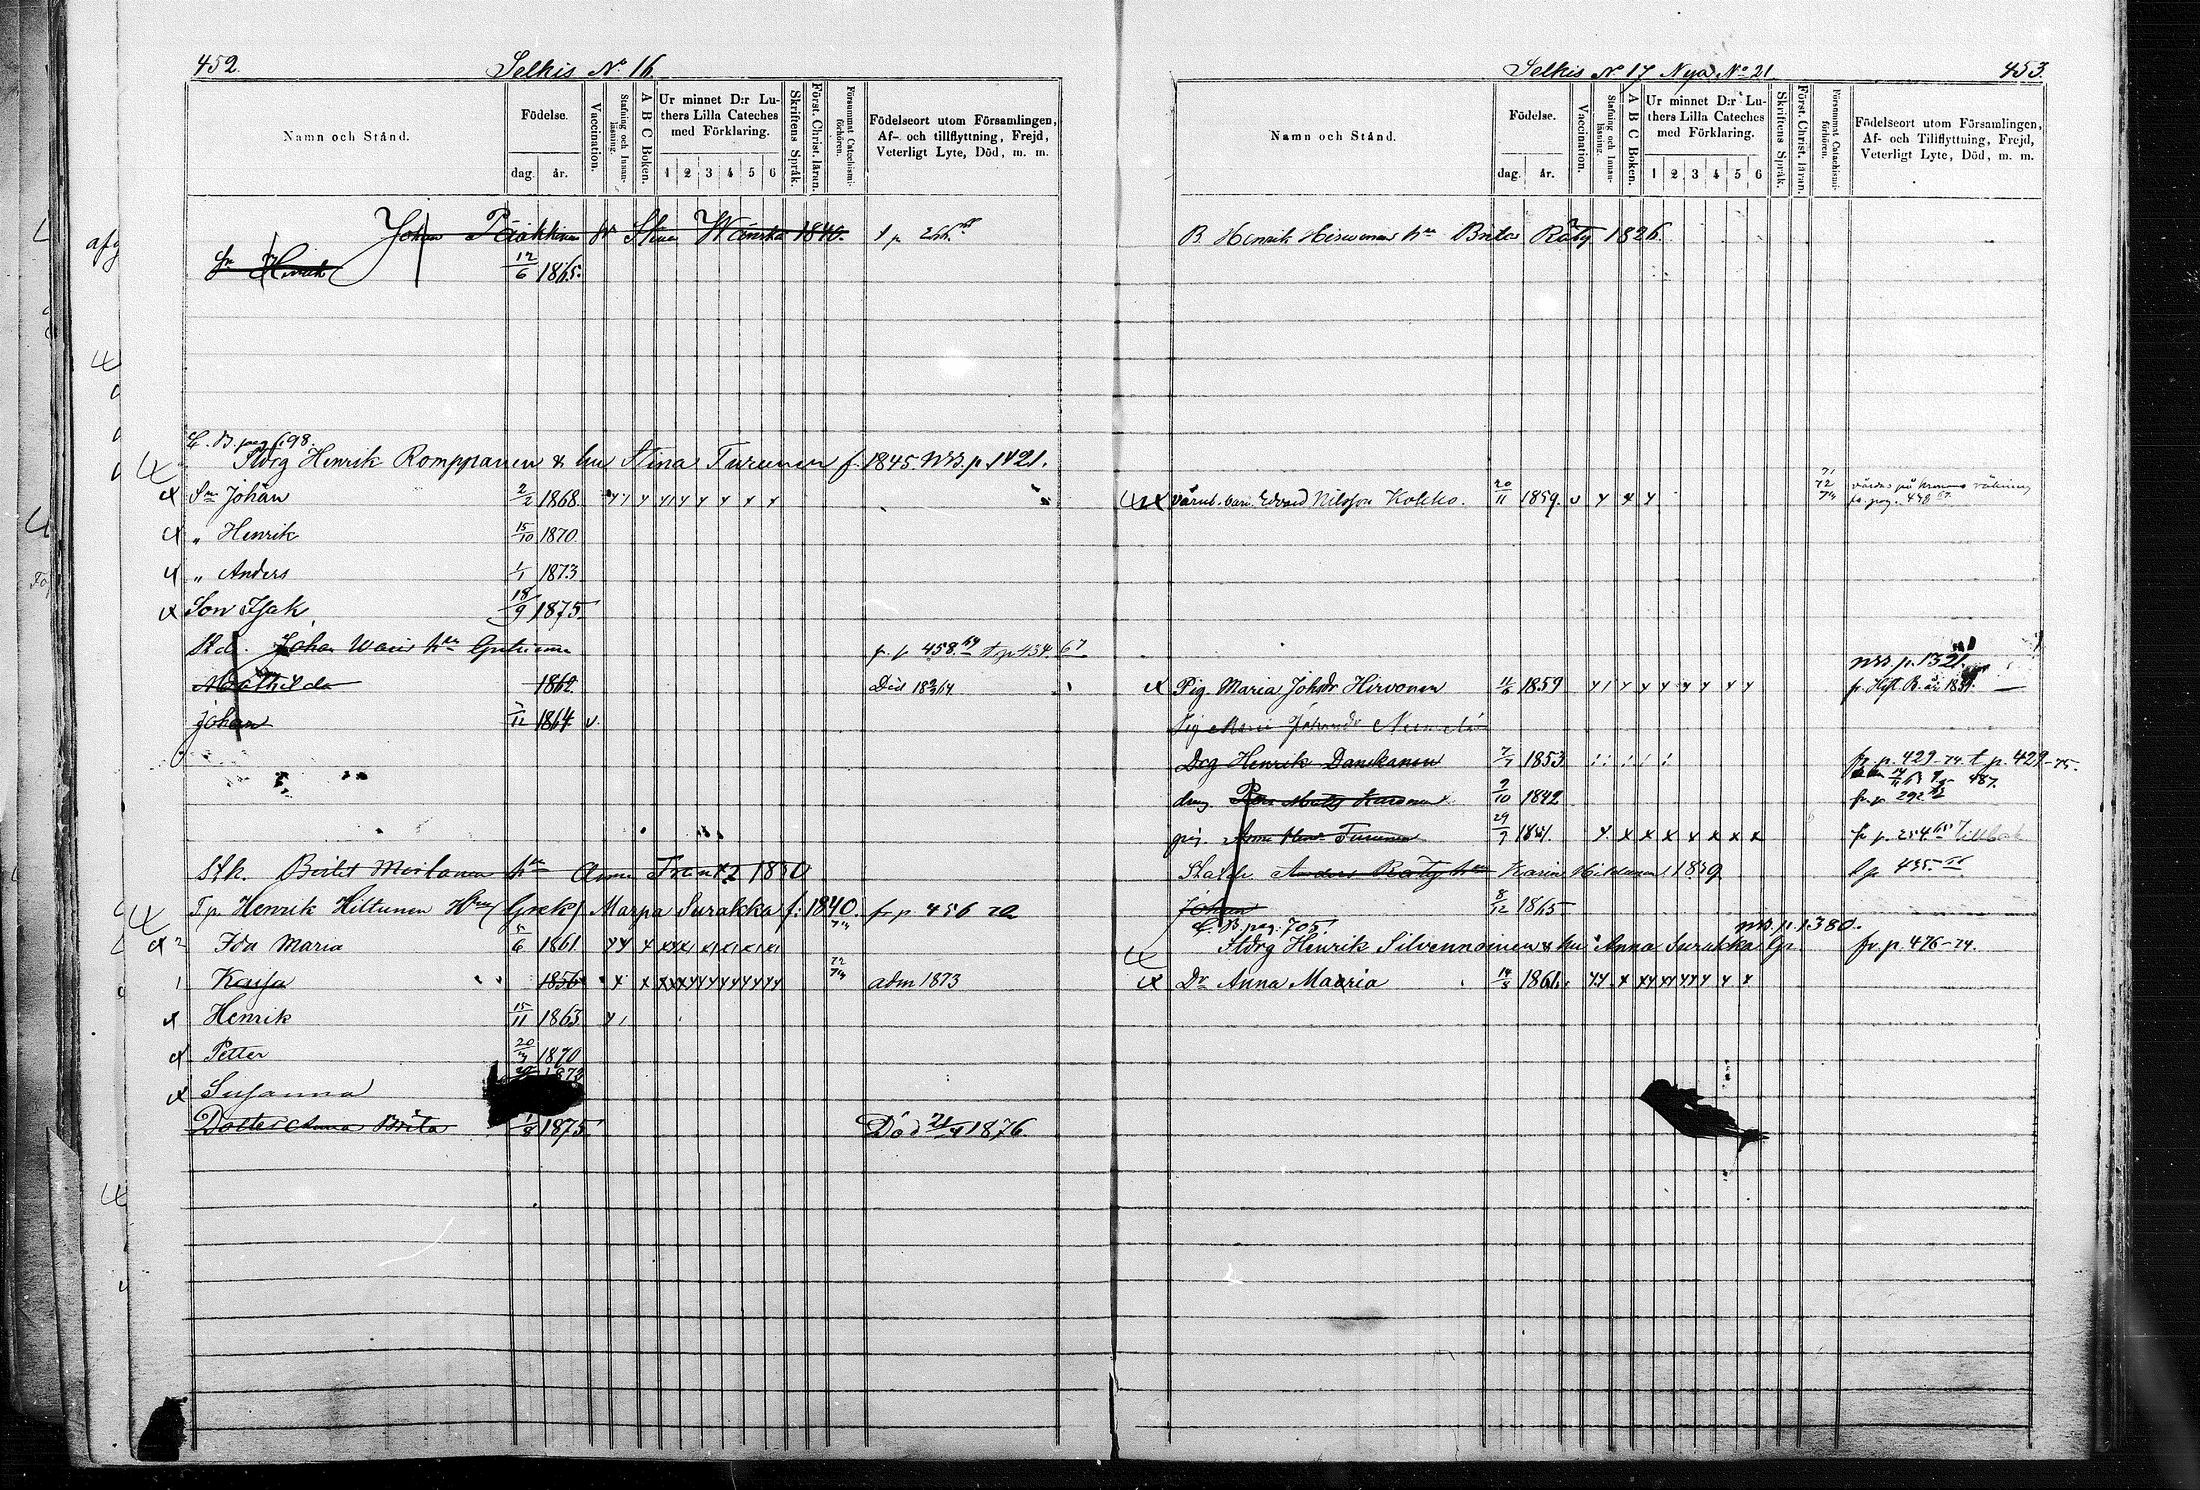 452.
Selkis No 16
Namn och Stånd.
Födelse.
dag. år.
Vaccination.
Stafning och Innanläsning.
A B C Boken.
Ur minnet D:r Luthers Lilla Cateches med Förklaring.
1 2 3 4 5 6
Skriftens Språk.
Först. Christ. läran.
Försummat Catechismiförhören.
Födelseort utom Församlingen, Af- och tillflyttning, Frejd, Veterligt Lyte, Död, m. m.
Johan Pääkkinen Stina 1840. t p 266
Sn Henrik 12/6 1865.
C. B. pag 698.
Stdrg Henrik Romppanen & hu Stina Turunen f. 1845. nrs. p. 1421.
Sn Johan 2/2 1868.
" Henrik 15/10 1870.
" Anders 1/1 1873
Son Isak 18/9 1875.
Johan hu p. 458. 69 t p 454. 67
Mathilda 1862 Död
Johan 1864 v.
Stk. hu Anna 1830
Tp. Henrik Hiltunen Hu (Grek) Marpa Surakka f: 1840. fr p. 456 72
2 Ida Maria 5/6 1861 74
1 Kaisa 1856 72 74 adm 1873
Henrik 15/11 1863
Petter 20/3 1870
Susanna
Dotter Anna Brita 1/8 1875. Död 21/4 1876.
Selkis No 17 Nya No 21
453.
Namn och Stånd.
Födelse.
dag. år.
Vaccination.
Stafning och Innanläsning.
A B C Boken.
Ur minnet D:r Luthers Lilla Cateches med Förklaring.
1 2 3 4 5 6
Skriftens Språk.
Först. Christ. läran.
Försummat Catechismiförhören.
Födelseort utom Församlingen, Af- och Tillflyttning, Frejd, Veterligt Lyte, Död, m. m.
B. Henrik Hirvonen hu Brita Räty 1826.
Edvard Nilsson Kokko. 20/11 1859. v 71 72 74 vårdas på kronans räkning fr. pag. 478 67.
nrs. p. 1321.
Pig. Maria Johsdr Hirvonen 11/6 1859 fr.
Pig Maria Johansdr
Drg Henrik Danskanen 7/7 1853 fr p. 429-74. t p. 429-75.
487.
drng 9/10 1842 fr. p 292
pig. Turunen 29/9 1851 fr p. 254 65
Anders Räty hu Karin 1839 t p 435.
Johan 8/12 1865
C. B. pag. 705. nrs. p. 1380.
Stdrg Henrik Silvennoinen & hu Anna Surakka fr. p. 476-74.
Dr Anna Maaria 14/3 1861.